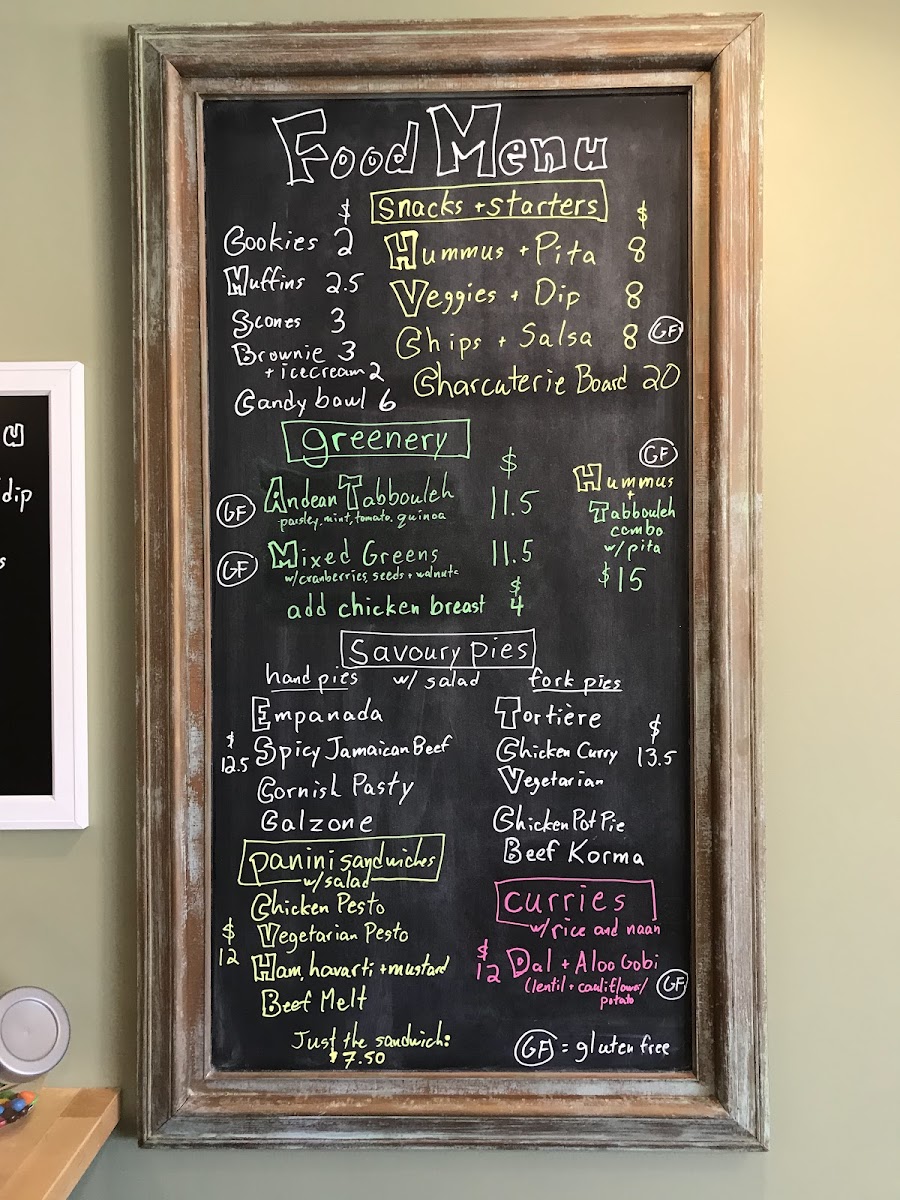 Food Menu
$
Cookies 2
Muffins 2.5
Scones 3
Brownie 3
+ icecream 2
Candy bowl 6
Snacks + starters
$
Hummus + Pita 8
Veggies + Dip 8
Chips + Salsa 8 GF
Charcuterie Board 20
greenery
$
GF Andean Tabbouleh 11.5
parsley, mint, tomato, quinoa
GF Mixed Greens 11.5
w/cranberries, seeds + walnuts
add chicken breast $4
GF
Hummus
+
Tabbouleh
combo
w/pita
$15
Savoury pies
w/ salad
hand pies
Empanada
$12.5 Spicy Jamaican Beef
Cornish Pasty
Calzone
fork pies
Tortière
Chicken Curry $13.5
Vegetarian
Chicken Pot Pie
Beef Korma
panini sandwiches
w/salad
Chicken Pesto
$12 Vegetarian Pesto
Ham, havarti + mustard
Beef Melt
Just the sandwich:
$7.50
curries
w/rice and naan
$12 Dal + Aloo Gobi
(lentil + cauliflower/
potato GF
GF = gluten free
dip